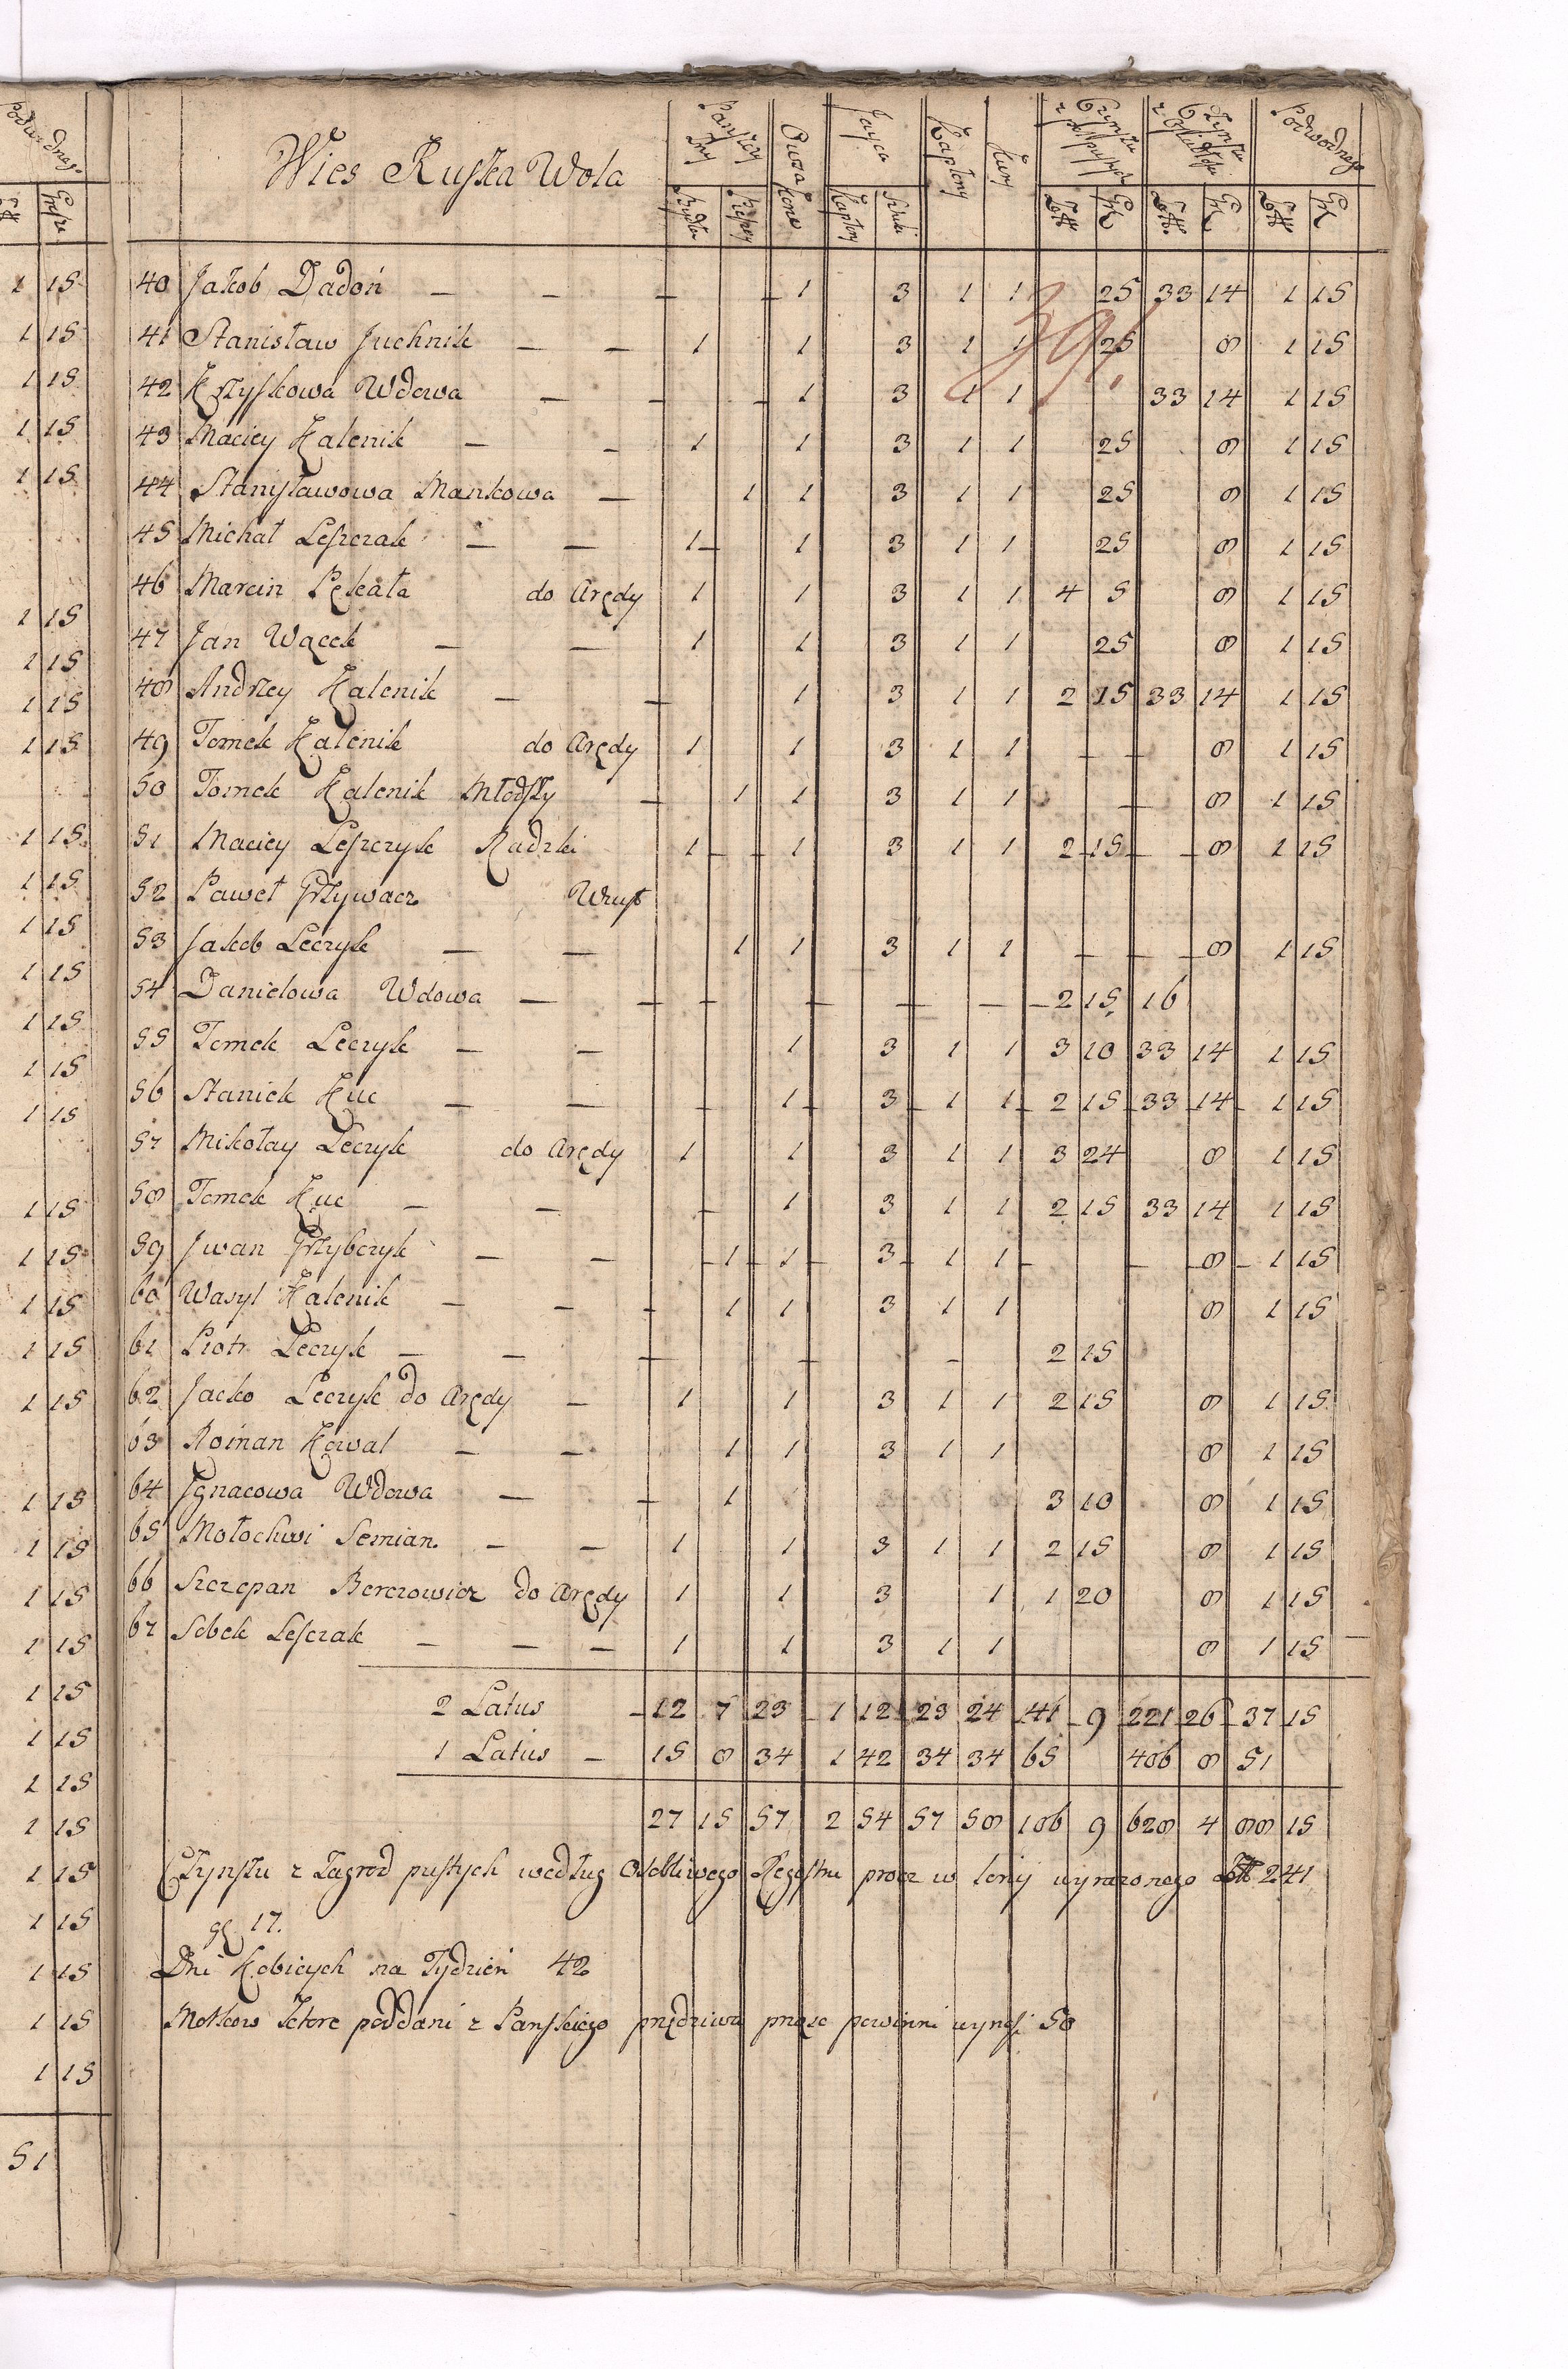 Podwodnego
Grosze
1 15
1 15
1 15
1 15
1 15
1 15
1 15
1 15
1 15
1 15
1 15
1 15
1 15
1 15
1 15
1 15
1 15
1 15
1 15
1 15
1 15
1 15
1 15
1 15
1 15
1 15
1 15
1 15
1 15
1 15
1 15
1 15
1 15
1 15
51
Wies Ruska Wola
Jayca Kapłony Kury Podwodnego
Kopy Sztuki
391.
40 Jakob Dadoń — — — 1 3 1 1 25 33 14 1 15
41 Stanisław Juchnik — — 1 1 3 1 1 25 8 1 15
42 Krzyskowa Wdowa — — 1 3 1 1 33 14 1 15
43 Maciey Kalenik — — 1 1 3 1 1 25 8 1 15
44 Stanisławowa Mankowa — 1 1 3 1 1 25 8 1 15
45 Michał Leszczak — — 1 1 3 1 1 25 8 1 15
46 Marcin Pękała do Arędy 1 1 3 1 1 4 5 8 1 15
47 Jan Wącek — — 1 1 3 1 1 25 8 1 15
48 Andrzey Kalenik — — 1 3 1 1 2 15 33 14 1 15
49 Tomek Kalenik do Arędy 1 1 3 1 1 — — 8 1 15
50 Tomek Kalenik Młodszy — 1 1 3 1 1 — 8 1 15
51 Maciey Leszczyk Radzki 1 1 3 1 1 2 15 8 1 15
52 Paweł Grzywacz
53 Jakob Leczyk — — 1 1 3 1 1 — — 8 1 15
54 Danielowa Wdowa — — — — — — 2 15 16
55 Tomek Leczyk — — 1 3 1 1 3 10 33 14 1 15
56 Staniek Kuc — — — 1 3 1 1 2 15 33 14 1 15
57 Mikołay Leczyk do Arędy 1 1 3 1 1 3 24 8 1 15
58 Tomek Kuc — — — 1 3 1 1 2 15 33 14 1 15
59 Jwan Grzybczyk — — 1 1 3 1 1 — 8 1 15
60 Wasyl Kalenik — — — 1 1 3 1 1 8 1 15
61 Piotr Leczyk — — — — — 2 15
62 Jacko Leczyk do Arędy — 1 1 3 1 1 2 15 8 1 15
63 Roman Kowal — — 1 1 3 1 1 8 1 15
64 Jgnacowa Wdowa — — 1 3 10 8 1 15
65 Mołochwi Semian — — 1 1 3 1 1 2 15 8 1 15
66 Szczepan Berezowicz do Arędy 1 1 3 1 1 20 8 1 15
67 Sobek Leszczak — — — 1 1 3 1 1 8 1 15
2 Latus — 12 7 23 1 12 23 24 41 9 221 26 37 15
1 Latus — 15 8 34 1 42 34 34 65 406 8 51
27 15 57 2 54 57 58 106 9 628 4 88 15
Czynszu z Zagrod pustych według Osobliwego Regestru procz w teny wyrazonego 241
gl 17.
Dni Kobicych na Tydzień 42
Motkow ktore poddani z Panskiego przędziwa prząsc powinni 50